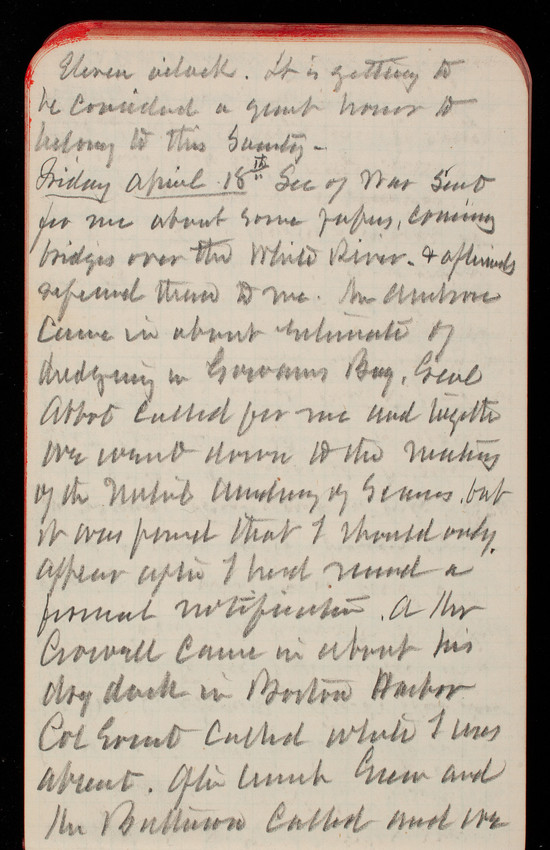 Eleven oclock. It is getting to
be considered a great honor to
belong to this Society -
Friday April 18th Sec of War sent
for me about some papers, coming
bridges over the White River. & afterwards
referred them to me. Mr
came in about estimate of
dredging in Gowanus Bay. Genl
Abbot called for me and together
we went down to the meeting
of the Nat'l Academy of Sciences, but
it was found that I should only
appear after I had rec'd a
formal notification. A Mr
Crowell came in about his
dry dock in Boston Harbor
Col Ernst called while I was
absent. After lunch Green and
Mr called and we